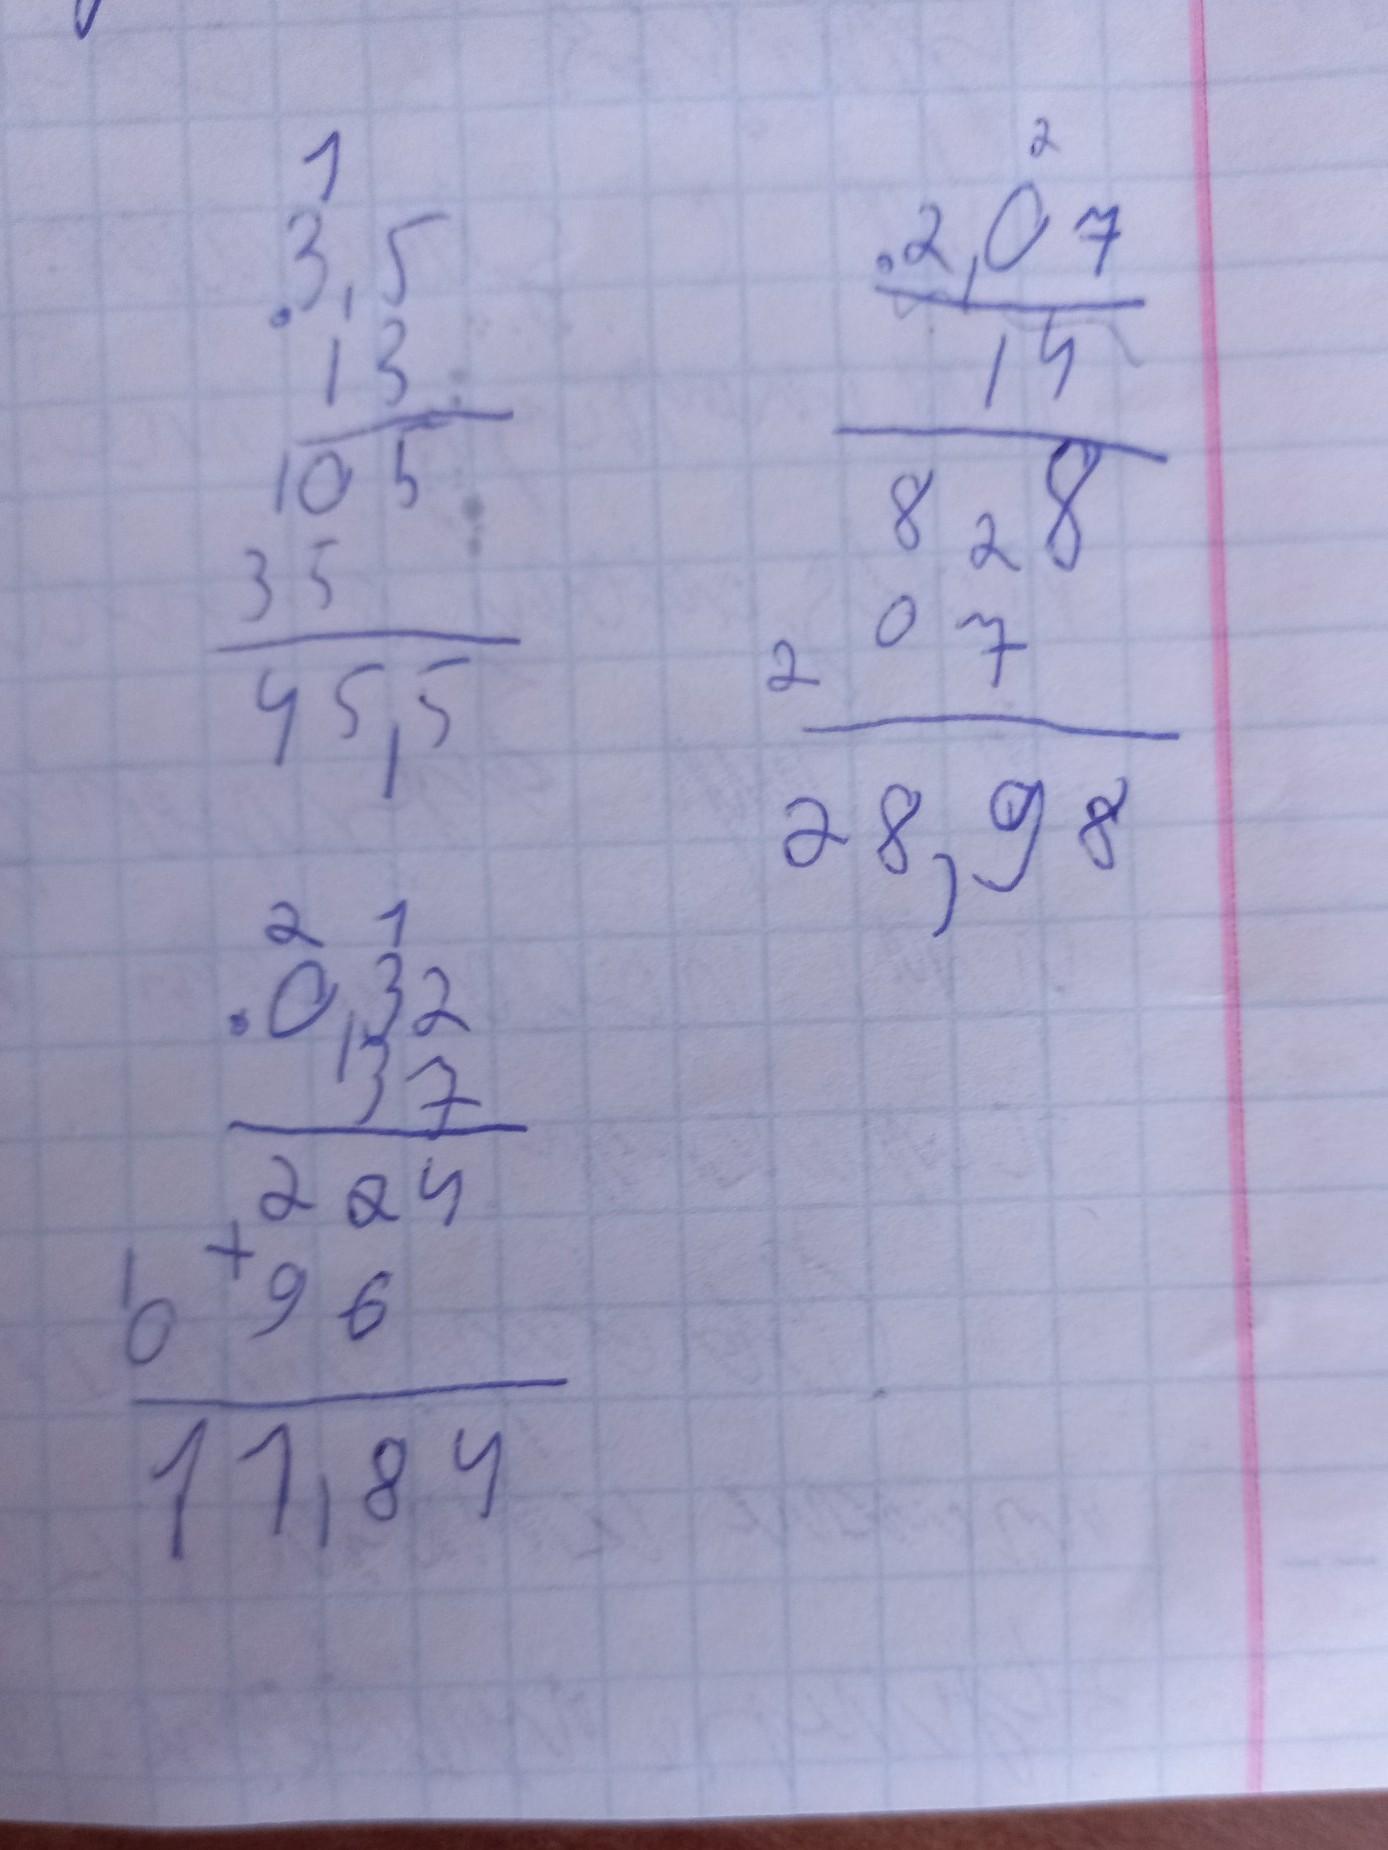 1
.3,5
13
105
35
45,5
2
.2,07
14
828
2 0 7
28,98
2 1
.0,32
37
224
+
1
0 9 6
11,84